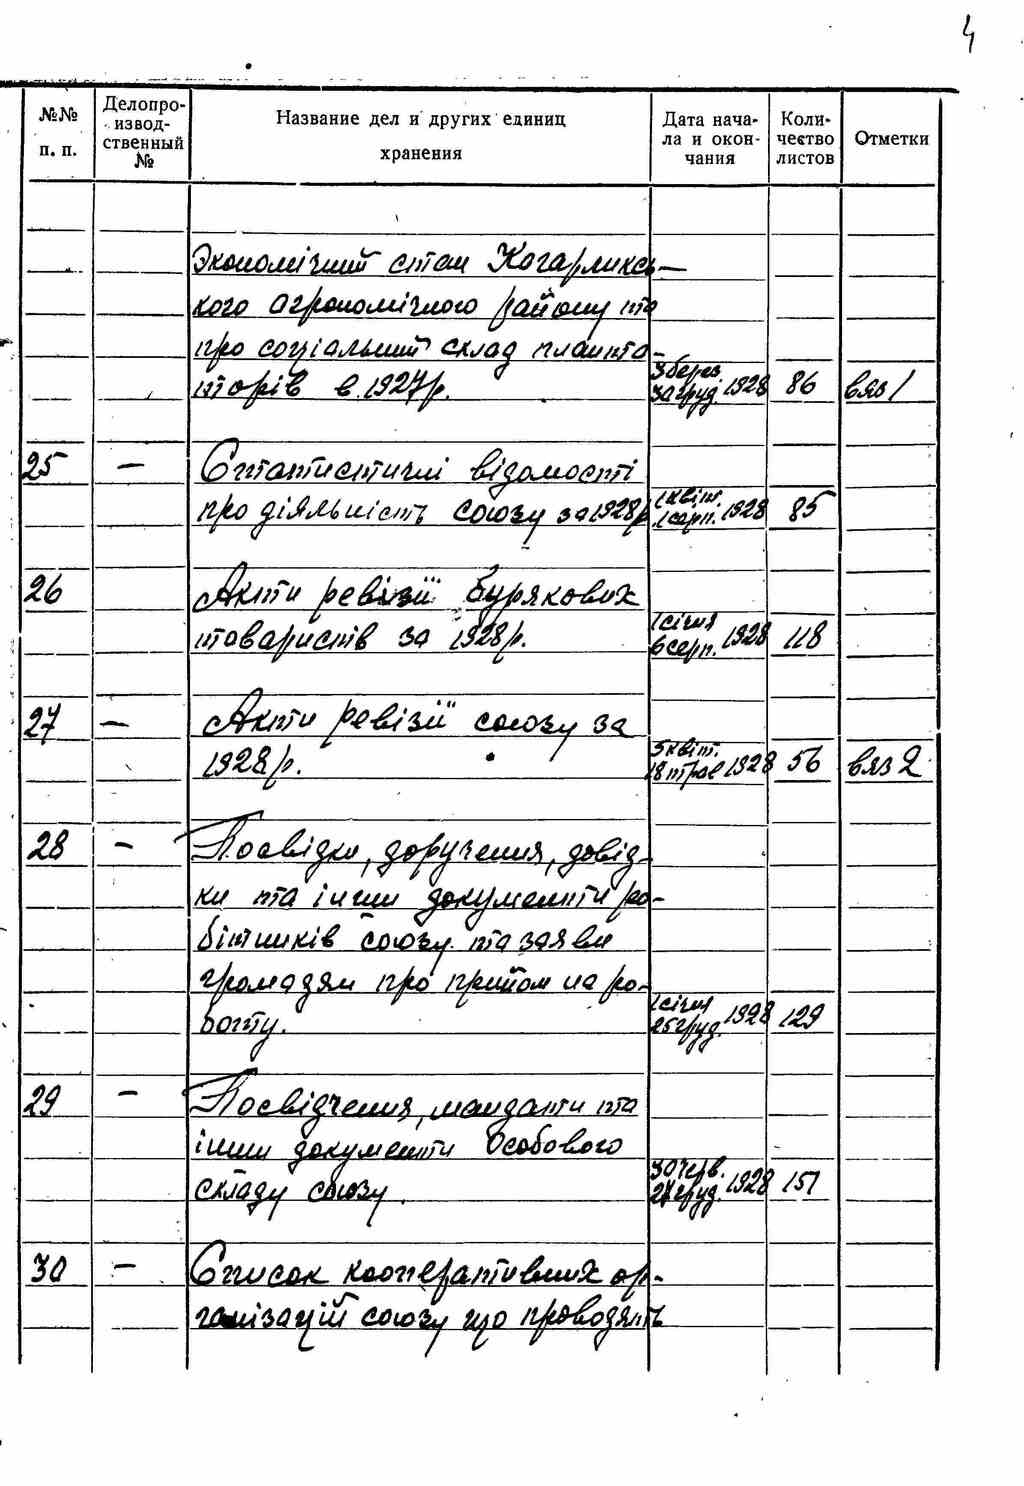 4
№№ п. п.
Делопро-
извод-
ственный
№
Название дел и других единиц
хранения
Дата нача-
ла и окон-
чания
Коли-
чество
листов
Отметки
Экономічний стан Кагарликсь-
кого агрономічного району та
про соціальний склад планта-
торів в 1927р.
3 берез.
30 груд. 1928
86
вяз 1
25
—
Статистичні відомості
про діяльність союзу за 1928р
1 квіт.
1 серп. 1928
85
26
Акти ревізії бурякових
товариств за 1928р.
1 січня
6 серп. 1928
118
27
—
Акти ревізії союзу за
1928р.
5 квіт.
18 трав 1928
56
вяз 2
28
—
Посвідки, доручення, довід-
ки та інши документи ро-
бітників союзу та заяви
громадян про прийом на ро-
боту.
1 січня
25 груд. 1928
129
29
—
Посвідчення, мандати та
інши документи особового
складу союзу.
30 черв.
27 груд. 1928
151
30
—
Список кооперативних ор-
ганізацій союзу що проводять